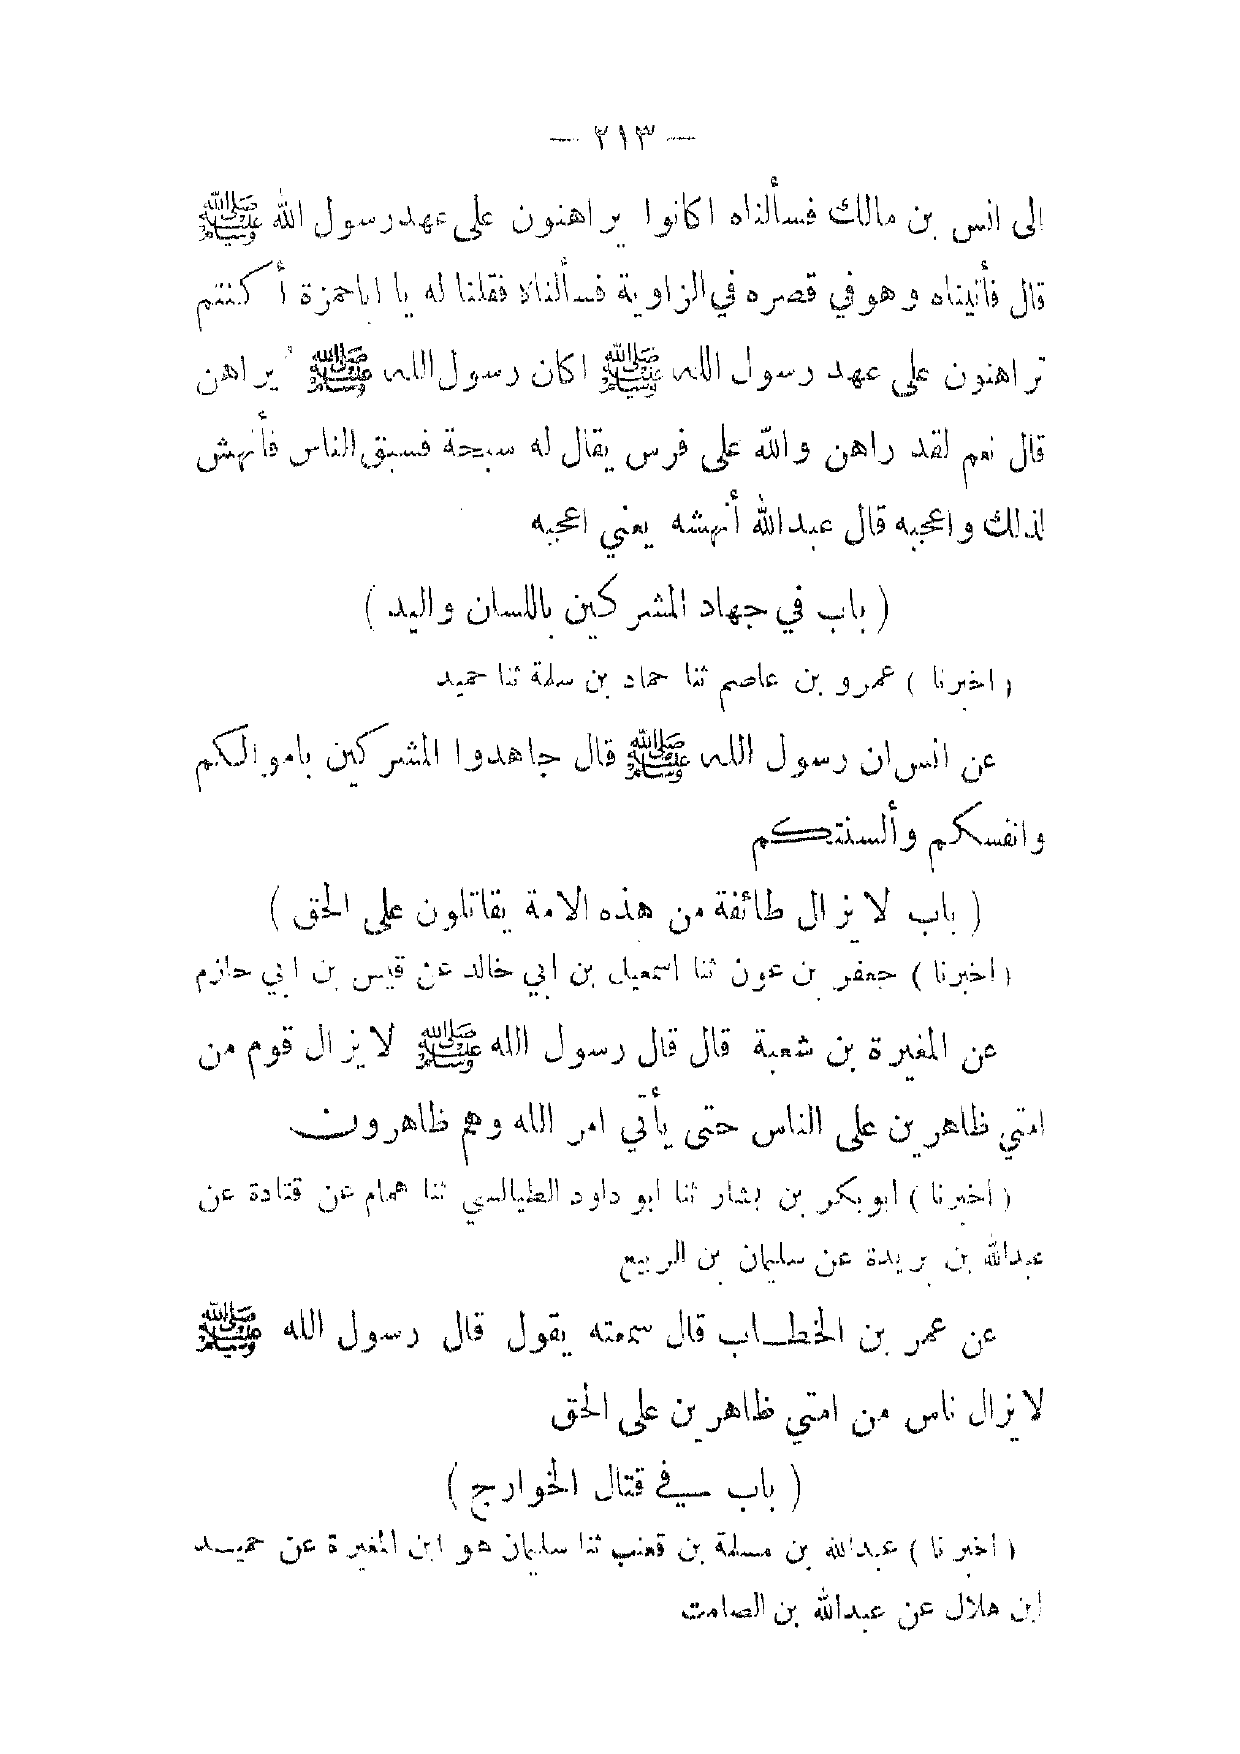 — ٢١٣ —
الى انس بن مالك فسألناه اكانوا يراهنون على عهد رسول الله ﷺ
قال فأتيناه وهو في قصره في الزاوية فسألناه فقلنا له يا اباحمزة أكنتم
تراهنون على عهد رسول الله ﷺ اكان رسول الله ﷺ يراهن
قال نعم لقد راهن والله على فرس يقال له سبحة فسبق الناس فأنهش
لذلك واعجبه قال عبدالله أنهشه يعني اعجبه
( باب في جهاد المشركين باللسان واليد )
( اخبرنا ) عمرو بن عاصم ثنا حماد بن سلمة ثنا حميد
عن انس ان رسول الله ﷺ قال جاهدوا المشركين باموالكم
وانفسكم وألسنتكم
( باب لا يزال طائفة من هذه الامة يقاتلون على الحق )
( اخبرنا ) جعفر بن عون ثنا اسمعيل بن ابي خالد عن قيس بن ابي حازم
عن المغيرة بن شعبة قال قال رسول الله ﷺ لا يزال قوم من
امتي ظاهرين على الناس حتى يأتي امر الله وهم ظاهرون
( اخبرنا ) ابوبكر بن بشار ثنا ابو داود الطيالسي ثنا همام عن قتادة عن
عبدالله بن بريدة عن سليمان بن الربيع
عن عمر بن الخطاب قال سمعته يقول قال رسول الله ﷺ
لا يزال ناس من امتي ظاهرين على الحق
( باب في قتال الخوارج )
( اخبرنا ) عبدالله بن مسلمة بن قعنب ثنا سليمان هو ابن المغيرة عن حميد
ابن هلال عن عبدالله بن الصامت